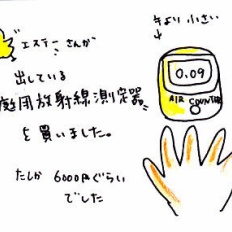 エステーさんが
出している
庭用放射線測定器
を買いました。
たしか 6000円ぐらい
でした
手より小さい
↓
0.09
AIR COUNTER